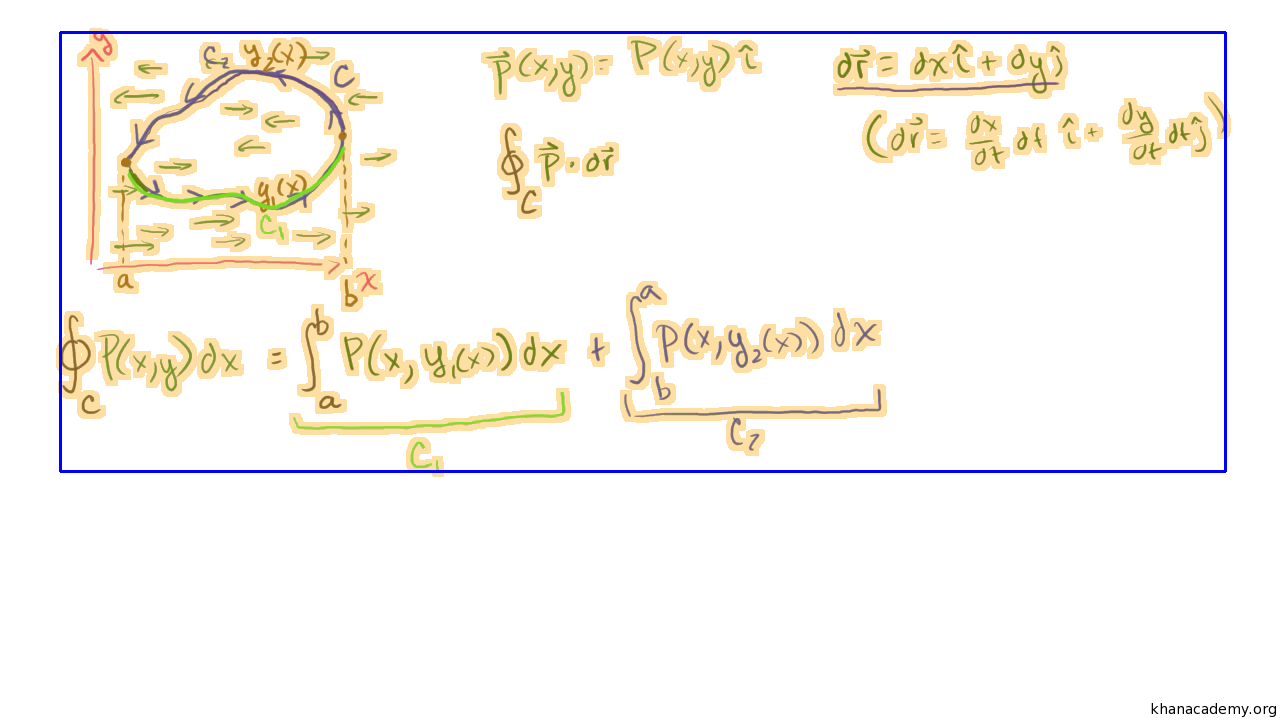 y
C₂ y₂(x) C
y₁(x)
C₁
a b x
P⃗(x,y) = P(x,y) î
dr⃗ = dx î + dy ĵ
(dr⃗ = dx/dt dt î + dy/dt dt ĵ)
∮_C P⃗ · dr⃗
∮_C P(x,y) dx = ∫_a^b P(x, y₁(x)) dx + ∫_b^a P(x, y₂(x)) dx
C₁ C₂
khanacademy.org